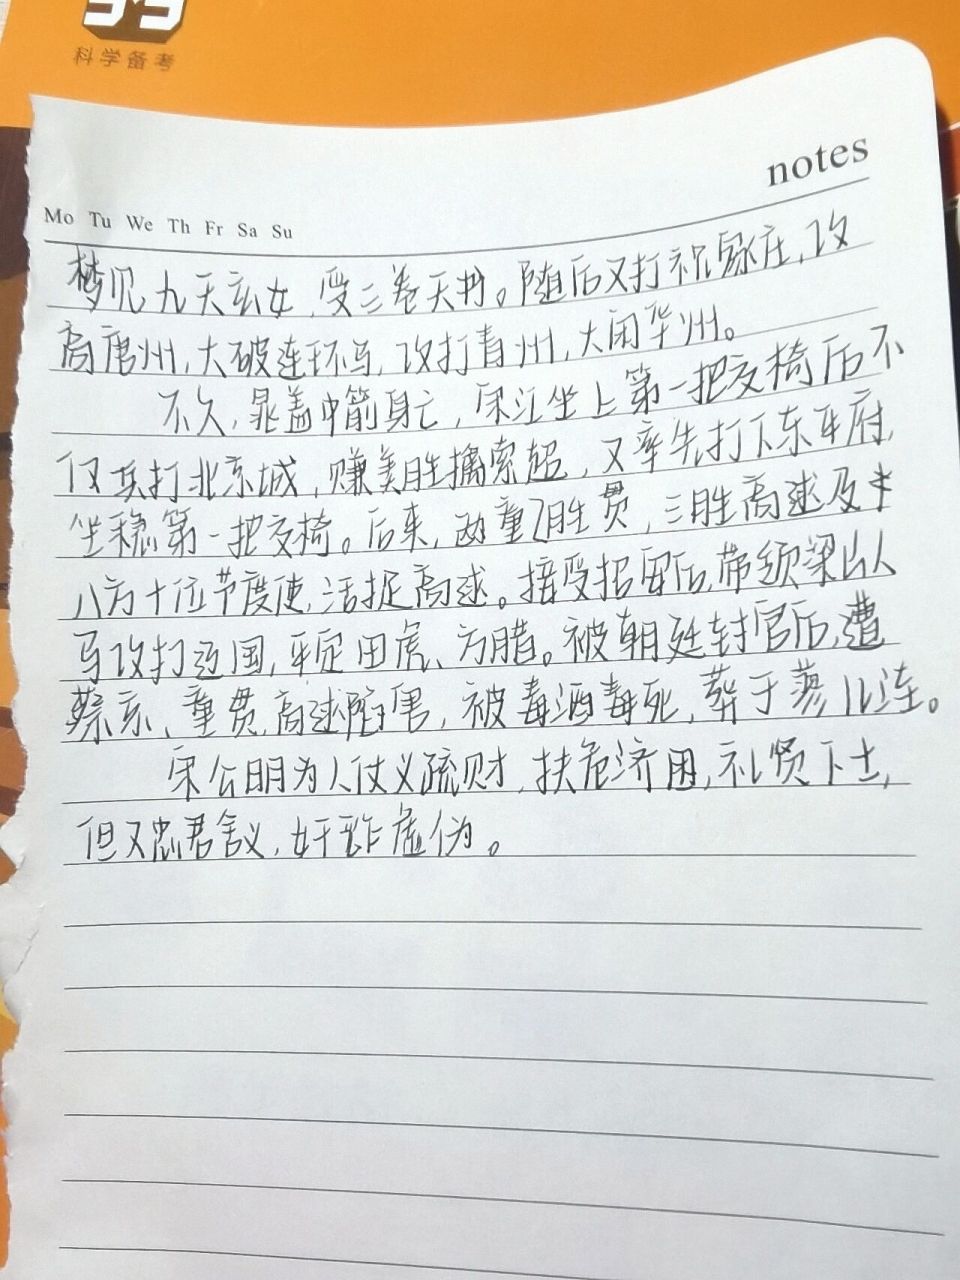 53
科学备考
notes
Mo Tu We Th Fr Sa Su
梦见九天玄女,受三卷天书。随后又打祝家庄,攻
高唐州,大破连环马,攻打青州,大闹华州。
不久,晁盖中箭身亡,宋江坐上第一把交椅后不
仅兵打北京城,赚关胜擒索超,又率先打下东平府,
坐稳第一把交椅。后来,两童胜贯,三胜高逑及
八方十位节度使,活捉高逑。接受招安后,带领梁山人
马攻打辽国,平定田虎、方腊。被朝廷封官后,遭
蔡京、童贯、高逑陷害,被毒酒毒死,葬于蓼儿洼。
宋公明为人仗义疏财,扶危济困,礼贤下士,
但又忠君舍义,奸诈虚伪。